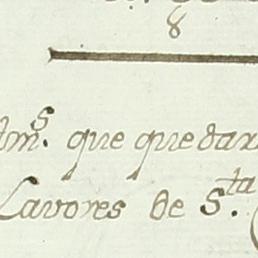 8
que quedar
Lavores de S.ta